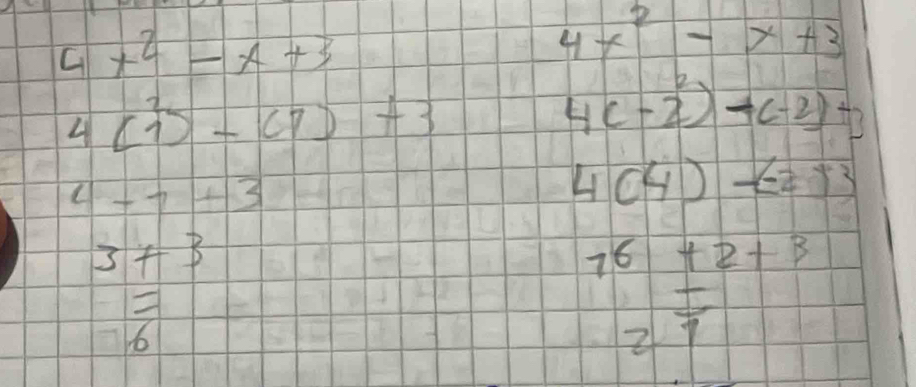 4x² - x + 3
4(1²) - (1) + 3
4 - 1 + 3
3 + 3
=
6
4x² - x + 3
4(-2²) - (-2) + 3
4(4) - (-2 + 3
16 + 2 + 3
=
21